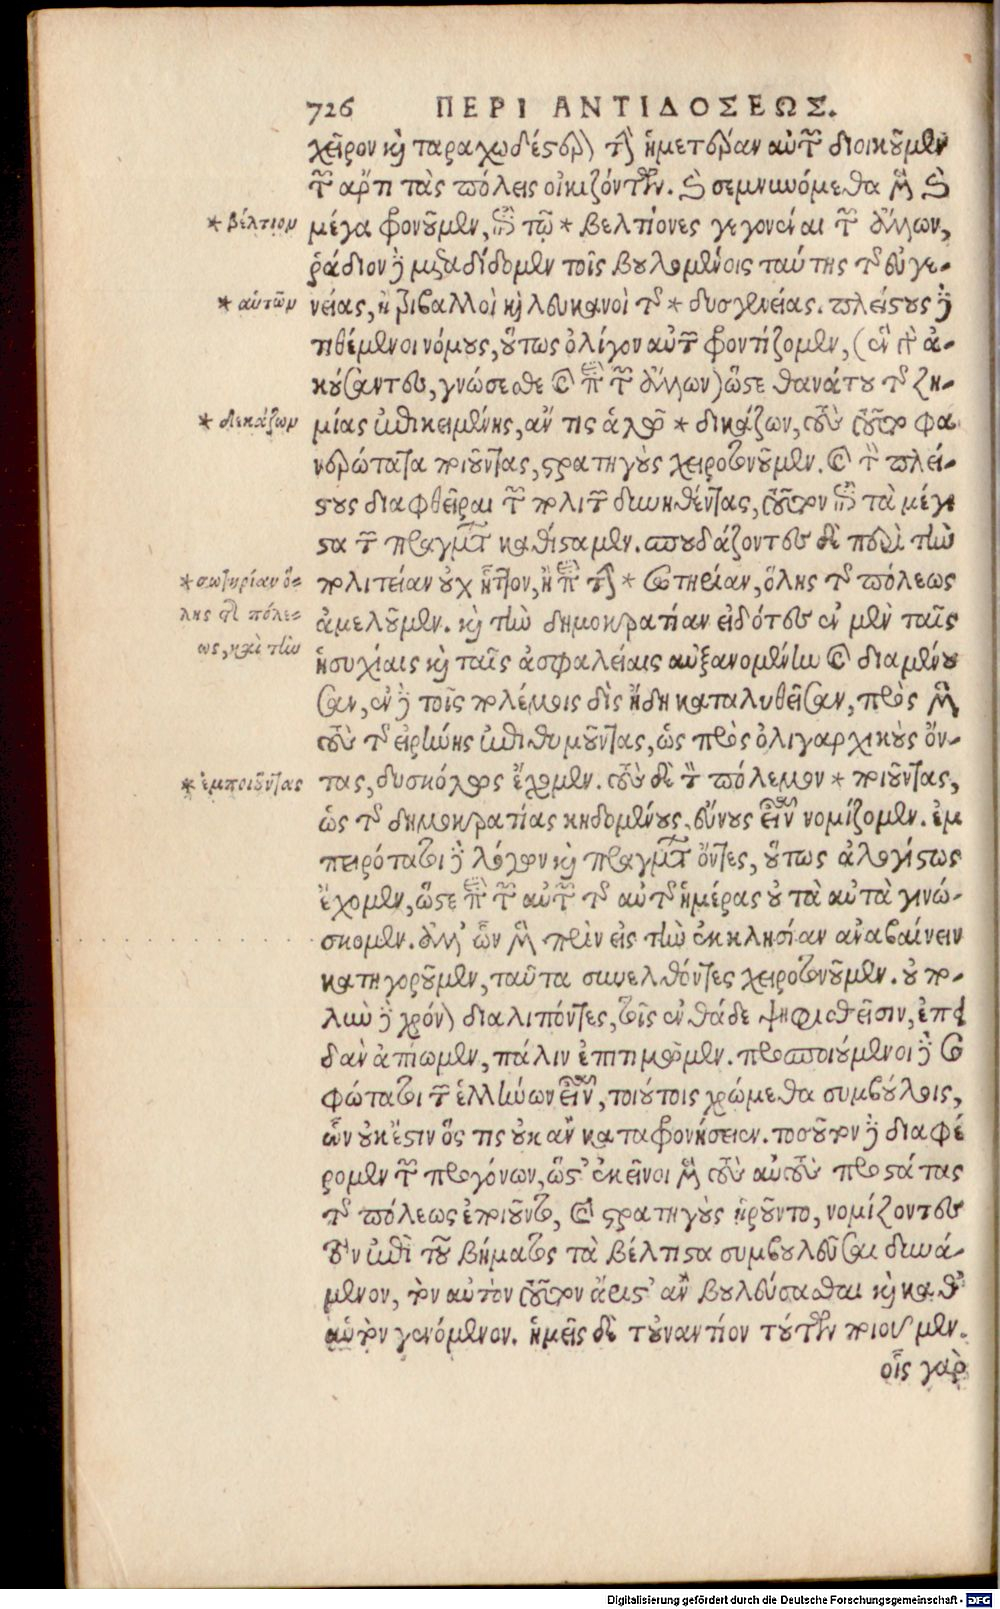 726 ΠΕΡΙ ΑΝΤΙΔΟΣΕΩΣ.
χεῖρον καὶ ταραχωδέστερον τὴν ἡμετέραν αὐτῶν διοικοῦμεν
τῶν ἄρτι τὰς πόλεις οἰκιζόντων. καὶ σεμνυνόμεθα μὲν καὶ
* βέλτιον
μέγα φρονοῦμεν, ἐπὶ τῷ * βελτίονες γεγονέναι τῶν ἄλλων,
ῥᾴδιον δὲ μεταδίδομεν τοῖς βουλομένοις ταύτης τῆς εὐγε-
* αὑτῶν
νείας, ἢ τριβαλλοὶ καὶ λευκανοὶ τῆς * δυσγενείας. πλείστους δὲ
τιθέμενοι νόμους, οὕτως ὀλίγον αὐτῶν φροντίζομεν, (ἓν γὰρ ἀ-
κούσαντες, γνώσεσθε καὶ περὶ τῶν ἄλλων) ὥστε θανάτου τῆς ζη-
* δεκάζων
μίας ἐπικειμένης, ἄν τις ἁλῷ * δικάζων, τοὺς τοῦτο φα
νερώτατα ποιοῦντας, στρατηγοὺς χειροτονοῦμεν. καὶ τὸν πλεί-
στους διαφθεῖραι τῶν πολιτῶν δυνηθέντας, τοῦτον ἐπὶ τὰ μέγι
στα τῶν πραγμάτων καθίσταμεν. σπουδάζοντες δὲ περὶ τὴν
* σωτηρίαν ὅ-
λης τῆς πόλε-
ως, καὶ τὴν
πολιτείαν οὐχ ἧττον, ἢ περὶ τὴν * σωτηρίαν, ὅλης τῆς πόλεως
ἀμελοῦμεν. καὶ τὴν δημοκρατίαν εἰδότες ἐν μὲν ταῖς
ἡσυχίαις καὶ ταῖς ἀσφαλείαις αὐξανομένην καὶ διαμένου
σαν, ἐν δὲ τοῖς πολέμοις δὶς ἤδη καταλυθεῖσαν, πρὸς μὲν
τοὺς τῆς εἰρήνης ἐπιθυμοῦντας, ὡς πρὸς ὀλιγαρχικοὺς ὄν-
* ἐμποιοῦντας
τας, δυσκόλως ἔχομεν. τοὺς δὲ τὸν πόλεμον * ποιοῦντας,
ὡς τῆς δημοκρατίας κηδομένους, εὔνους εἶναι νομίζομεν. ἐμ
πειρότατοι δὲ λόγων καὶ πραγμάτων ὄντες, οὕτως ἀλογίστως
ἔχομεν, ὥστε περὶ τῶν αὐτῶν τῆς αὐτῆς ἡμέρας οὐ τὰ αὐτὰ γινώ-
σκομεν. ἀλλ' ὧν μὲν πρὶν εἰς τὴν ἐκκλησίαν ἀναβαίνειν
κατηγοροῦμεν, ταῦτα συνελθόντες χειροτονοῦμεν. οὐ πο-
λὺν δὲ χρόνον διαλιπόντες, τοῖς ἐνθάδε ψηφισθεῖσιν, ἐπει
δὰν ἀπίωμεν, πάλιν ἐπιτιμῶμεν. προσποιούμενοι δὲ σο
φώτατοι τῶν ἑλλήνων εἶναι, τοιούτοις χρώμεθα συμβούλοις,
ὧν οὐκ ἔστιν ὅς τις οὐκ ἂν καταφρονήσειεν. τοσοῦτον δὲ διαφέ
ρομεν τῶν προγόνων, ὥστ' ἐκεῖνοι μὲν τοὺς αὐτοὺς προστάτας
τῆς πόλεως ἐποιοῦντο, καὶ στρατηγοὺς ᾑροῦντο, νομίζοντες
τὸν ἐπὶ τοῦ βήματος τὰ βέλτιστα συμβουλεῦσαι δυνά-
μενον, τὸν αὐτὸν τοῦτον ἄριστ' ἂν βουλεύσασθαι καὶ καθ'
αὑτὸν γενόμενον. ἡμεῖς δὲ τοὐναντίον τούτων ποιοῦμεν.
οἷς γὰρ
Digitalisierung gefördert durch die Deutsche Forschungsgemeinschaft - DFG